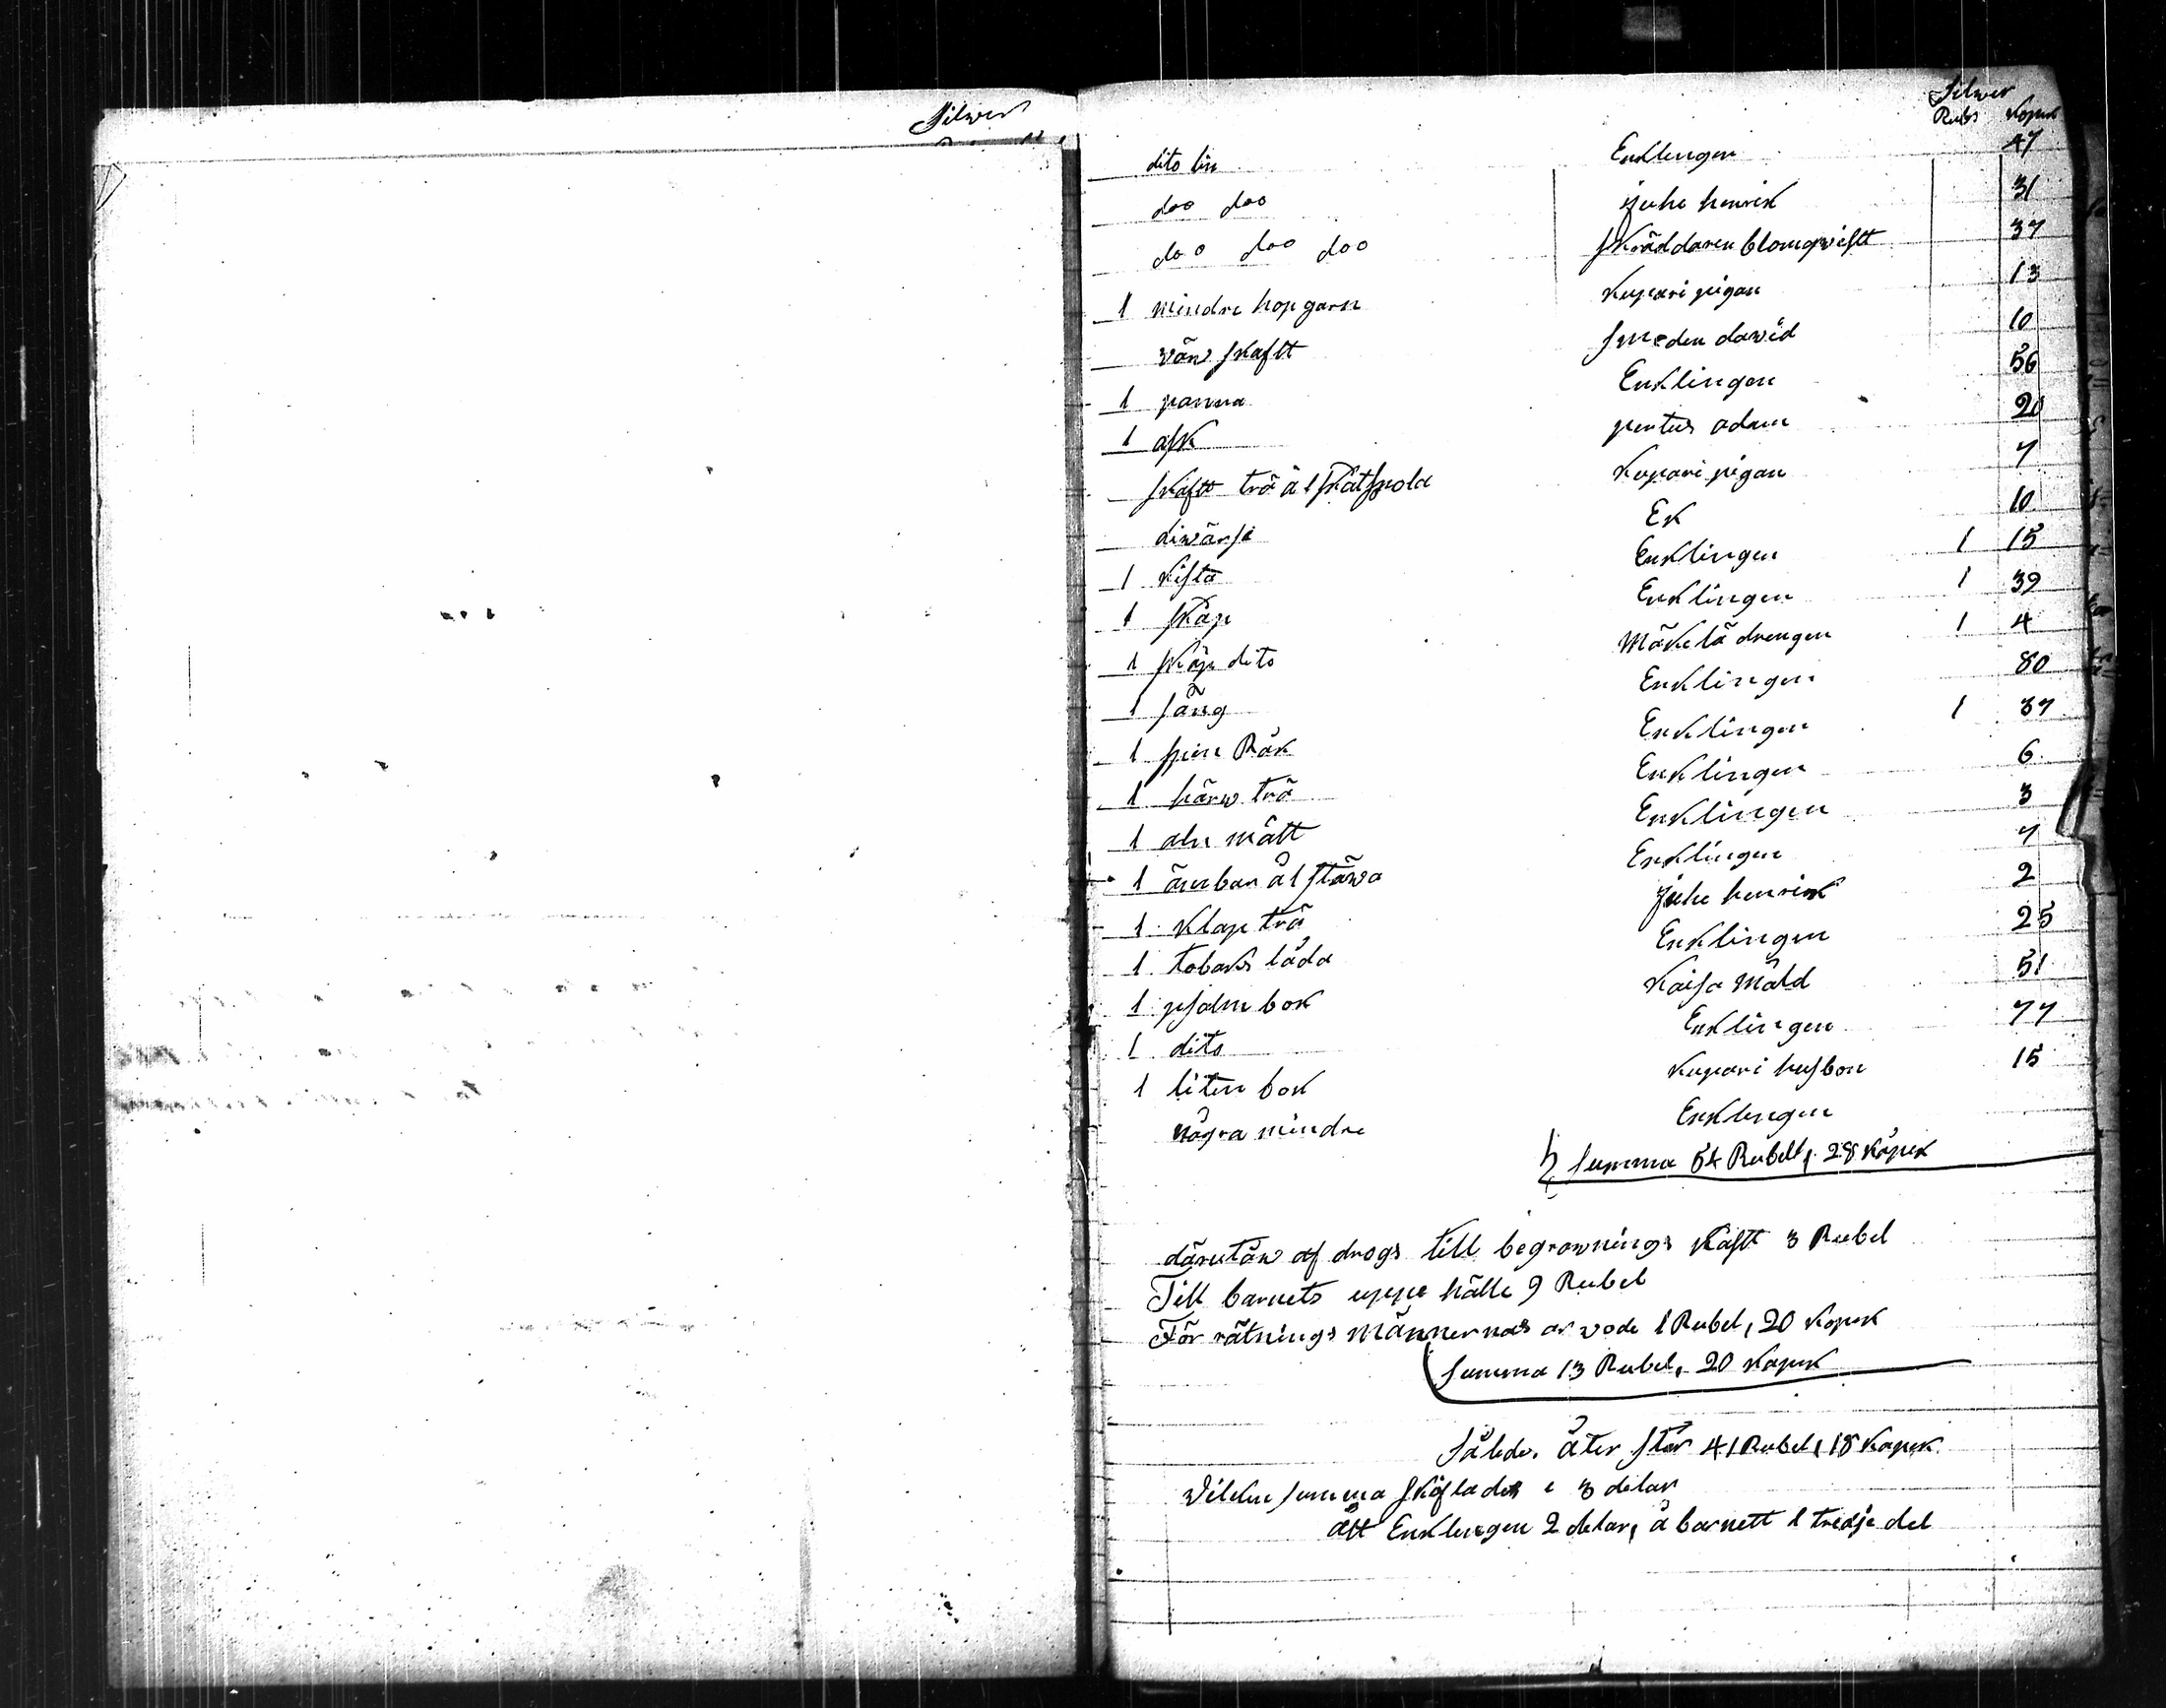 Silwer
Silwer
Rubl Kopek
dito lin Enklingen 47
doo doo juho henrik 31
doo doo doo skräddaren blomqwistt 37
1 mindre hop garn Kupari pigan 13
väw skaftt smeden dawid 10
1 panna Enklingen 56
1 ask pentus adam 20
skaftt trä å 1 skätspola Kupari pigan 7
diwärse Ek 10
1 kista Enklingen 1 15
1 skåp Enklingen 1 39
1 skåp dito Mäkelä drengen 1 4
1 säng Enklingen 80
1 spin Råk Enklingen 1 37
1 härw trä Enklingen 6
1 aln mått Enklingen 3
1 ämbar å 1 stäwa Enklingen 7
1 klap trä juho henrik 2
1 tobaks låda Enklingen 25
1 psalm bok Kaisa Måld 51
1 dito Enklingen 77
1 liten bok Kupari husbon 15
några mindre Enklingen
Summa 54 Rubel, 28 kopek
därutäw af drogs till begrawnings kåstt 3 Rubel
Till barnets uppe hälle 9 Rubel
För rätnings männernas ar wode 1 Rubel, 20 kopek
Summa 13 Rubel, 20 kopek
Således åter står 41 Rubel, 18 kopek
Vilken summa skiftades i 3 delar
ått Enklingen 2 delar, å barnett 1 tredje del